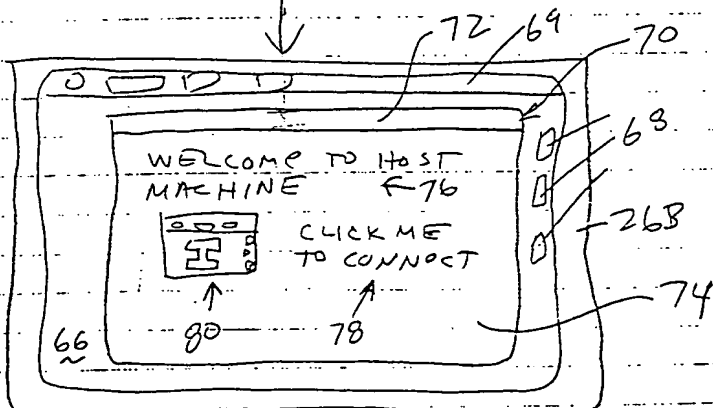 72 69 70
WELCOME TO HOST
MACHINE ←76
68
26B
CLICK ME
TO CONNECT
74
66 80 78